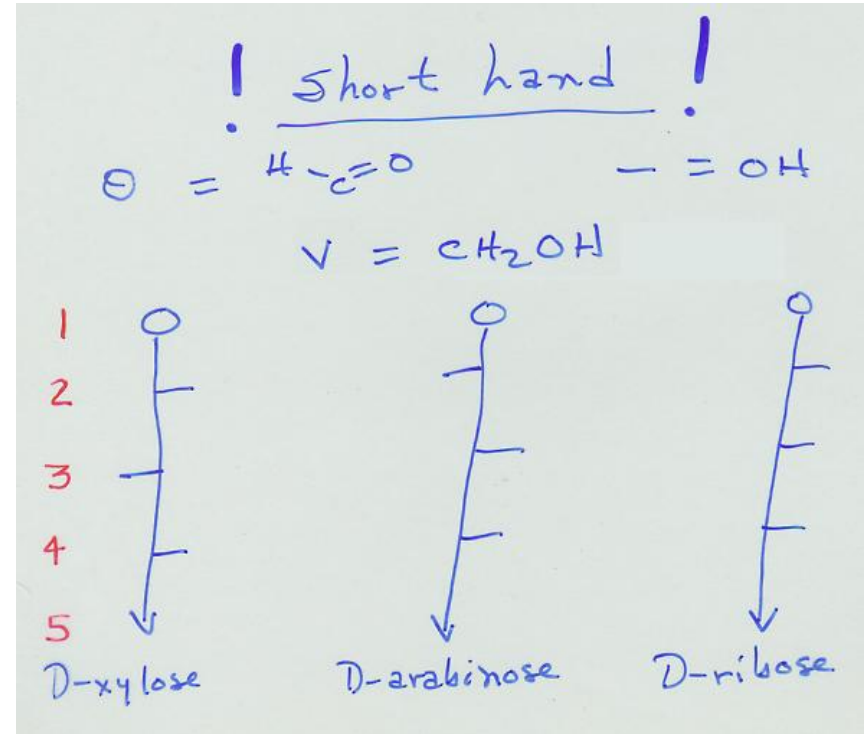 ! short hand !
⊖ = H-C=O — = OH
V = CH2OH
1
2
3
4
5
D-xylose D-arabinose D-ribose